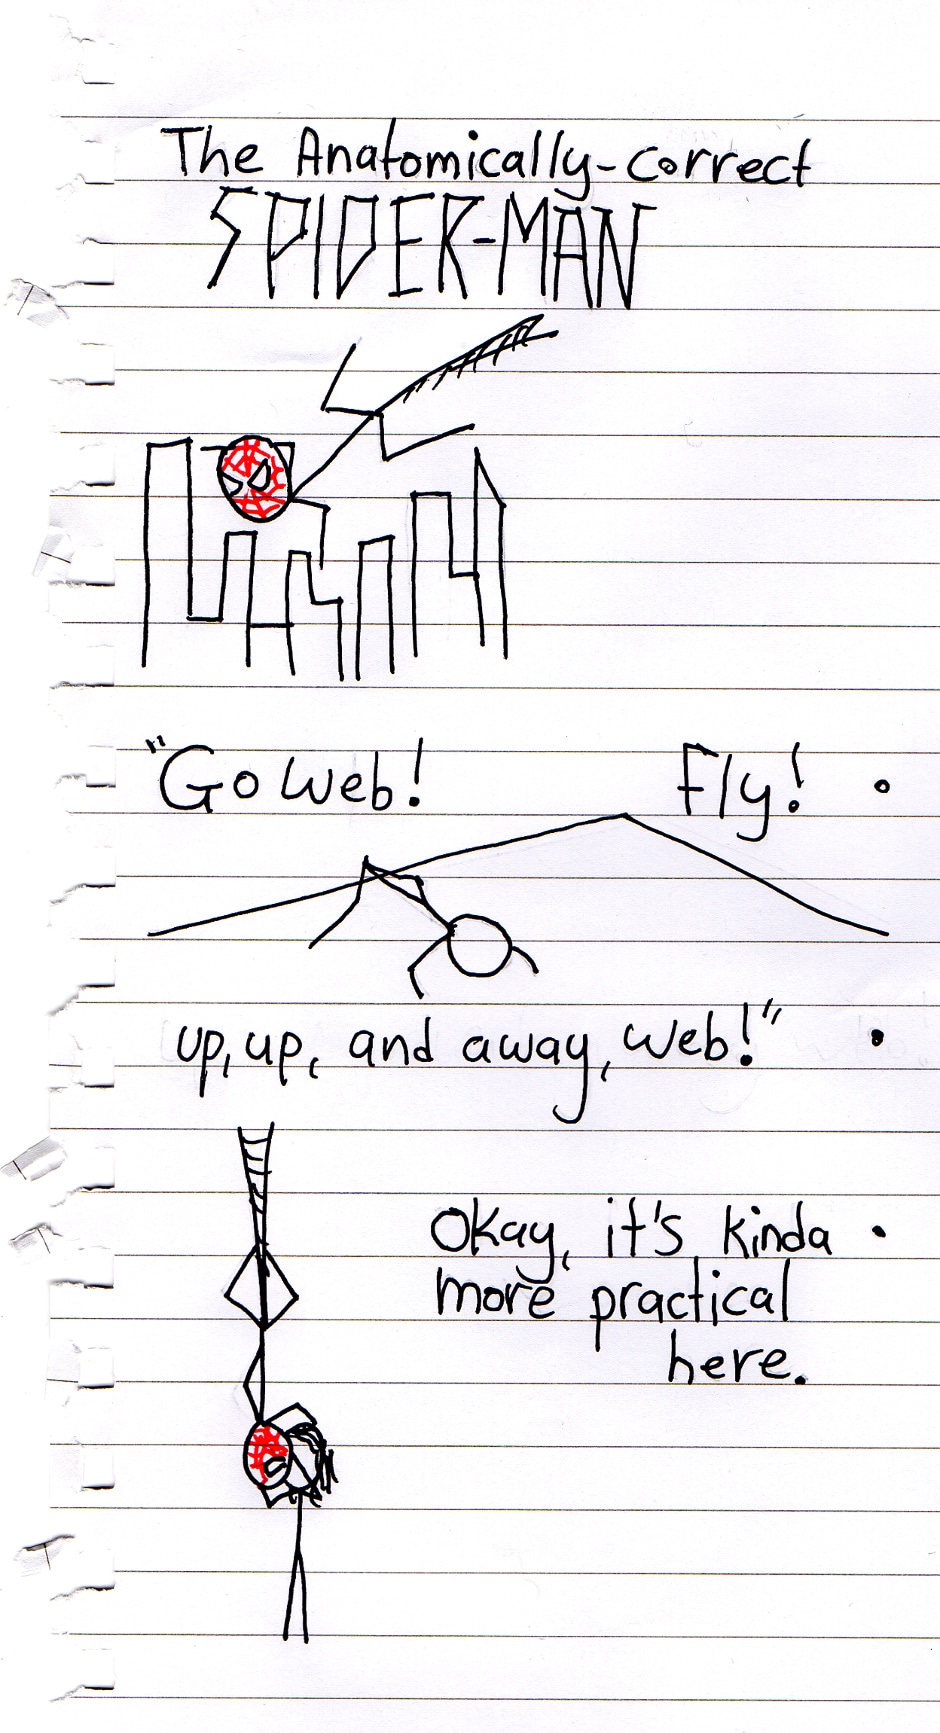 The Anatomically-correct
SPIDER-MAN
"Go web! Fly!
up, up, and away, web!"
Okay, it's kinda
more practical
here.